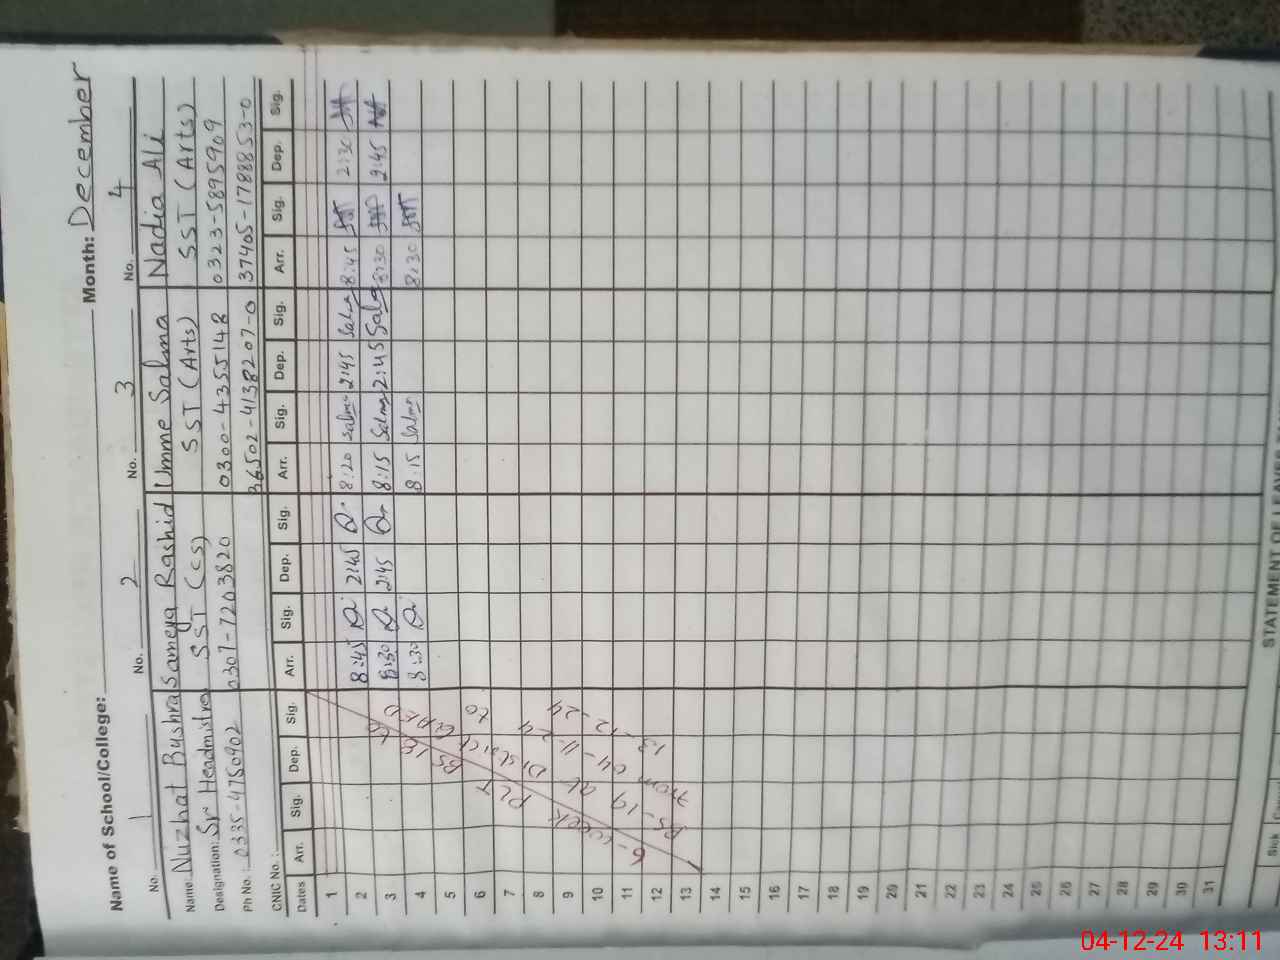 Name of School/College: Month: December
No. 1 No. 2 No. 3 No. 4
Name: Nuzhat Bushra Sameya Rashid Umme Salma Nadia Ali
Designation: Sr Headmistress SST (CS) SST (Arts) SST (Arts)
Ph No.: 0335-4750902 0307-7203820 0300-4355148 0323-5895909
CNIC No.: 36502-4138207-0 37405-1788853-0
Dates Arr. Sig. Dep. Sig. Arr. Sig. Dep. Sig. Arr. Sig. Dep. Sig. Arr. Sig. Dep. Sig.
1
2 8:45 2:45 8:20 Salma 2:45 Salma 8:45 2:30
3 8:30 2:45 8:15 Salma 2:45 Salma 8:30 2:45
4 8:30 8:15 Salma 8:30
5
6
7
8
9
10
11
12
13
14
15
16
17
18
19
20
21
22
23
24
25
26
27
28
29
30
31
6-week PLT BS 18 to
BS-19 at District QAED
from 04-11-24 to
13-12-24
STATEMENT OF LEAVES
Sick
04-12-24 13:11